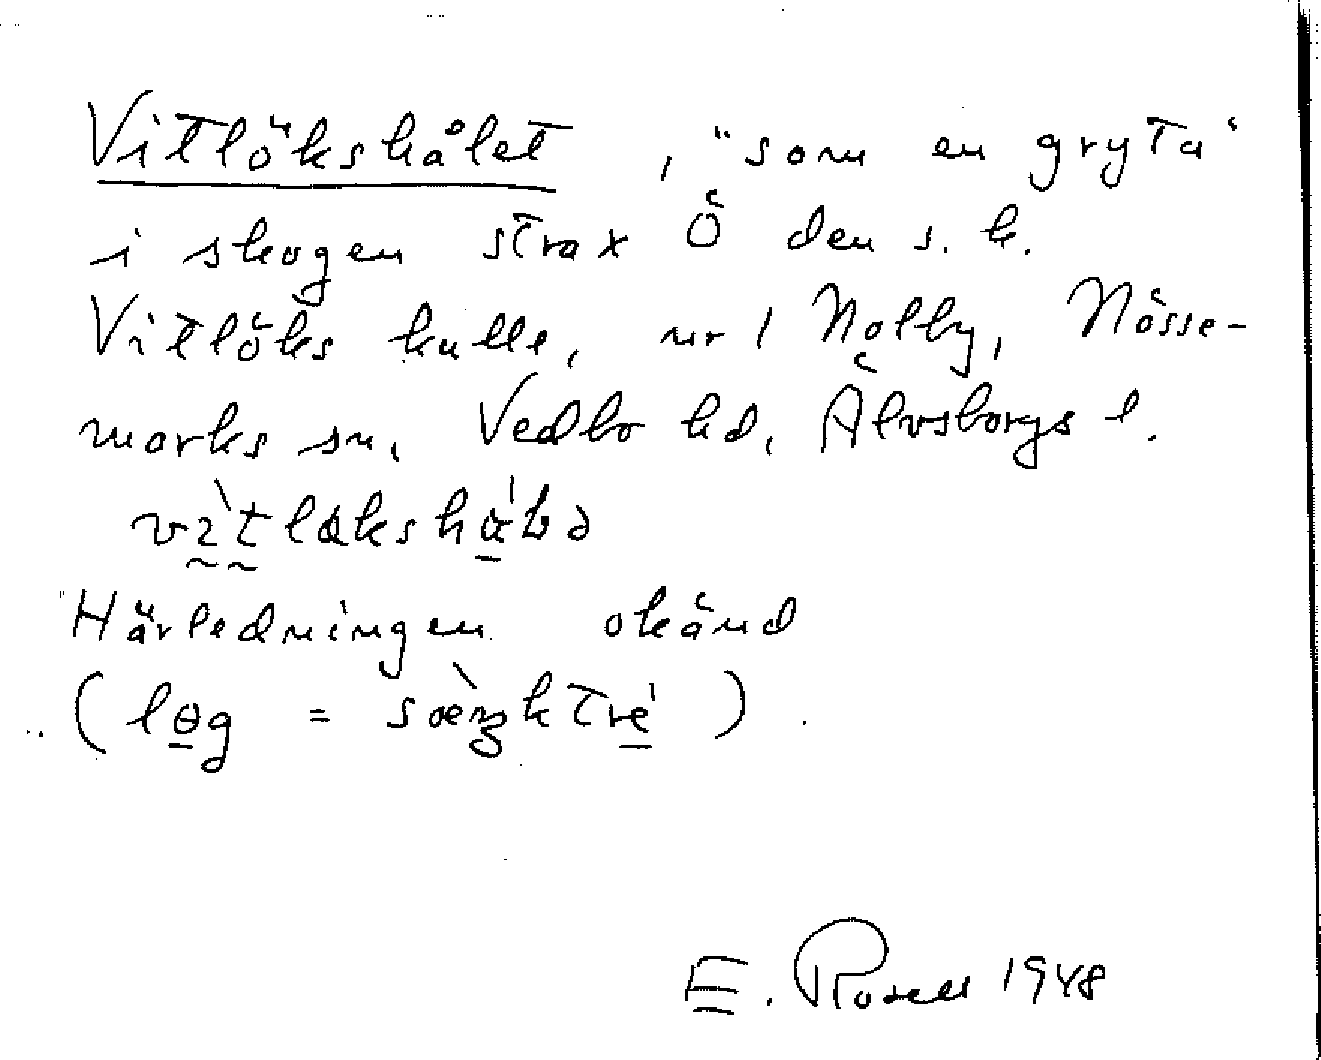 Vitlökshålet, "som en gryta"
i skogen strax Ö den s. k.
Vitlöks kulle, nr 1 Nolby, Nösse-
marks sn, Vedbo hd, Älvsborgs l.
Härledningen okänd
(løg = sænktre)
E. Rosell 1948